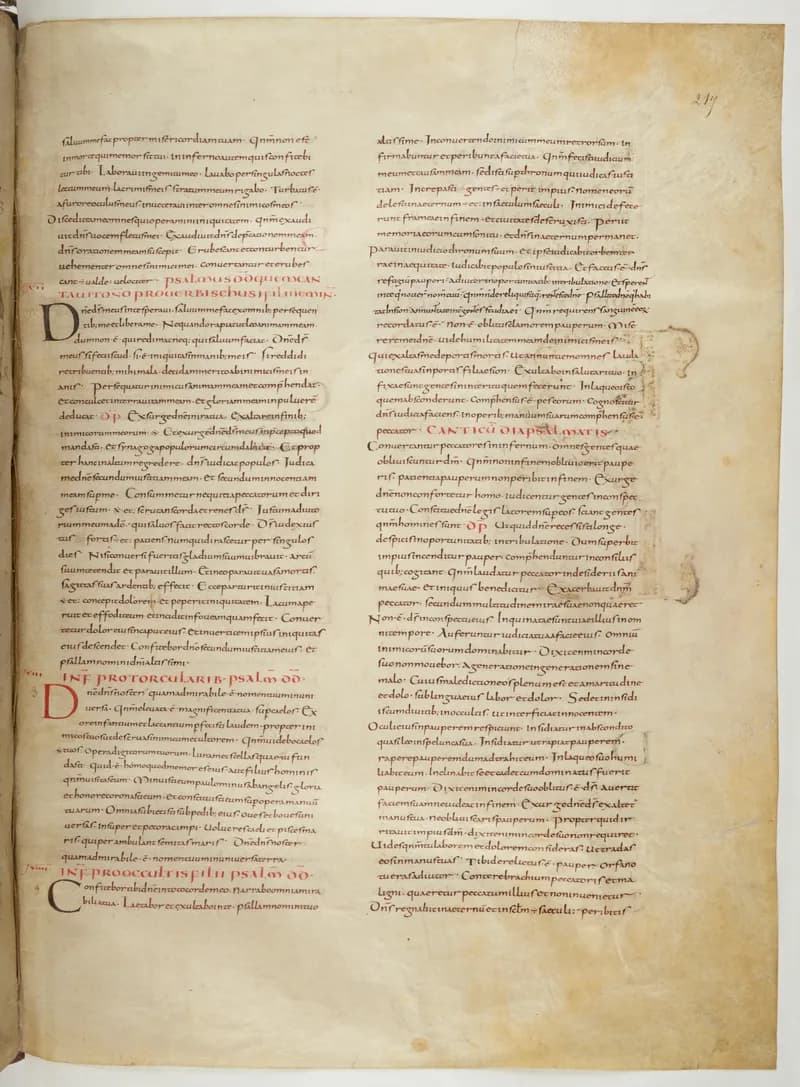 219
saluummefac propter misericordiamtuam · Qnmnon est
inmortequimemor sittui · ininfernoautemquisconfitebi
turtibi · Laborauiingemitumeo · Lauabopersingulasnoctes
lectummeum · lacrimismeis stratummeumrigabo · Turbatusē
afuroreoculusmeus · inueteraui interomnesinimicosmeos
Discediteamomnesquioperaminiiniquitatem · qnmexaudi
uit dnsuocemfletusmei · Exaudiuitdnsdeprecationemmeam
dnsorationemmeamsuscepit · Erubescantetconturbentur
uehementer omnesinimicimei · conuertantur eterubes
cant ualde uelociter · PSALMUS DD QUEM CAN
TAUIT DNO PRO UERBIS CHUSI FILII IEMIN
Dnedsmeusintesperaui · saluummefacexomnib; persequen
tib; meetliberame · Nequandorapiatutleoanimammeam
dumnon ē quiredimat neq; quisaluumfaciat · Dneds
meus sifeciistud · si ē iniquitasinmanib; meis · sireddidi
retribuentib; mihimala · decidammeritoabinimicismeisin
anis · Persequatur inimicusanimammeam etcomphendat
etconculcetinterrauitammeam · Etgloriammeaminpuluerē
deducat · DP Exsurgednēiniratua · Exaltareinfinib;
inimicorummeorum · Etexurgednedsmeusinpceptoquod
mandasti · et synagogapopulorumcircumdabitte · Etprop
ter hancinaltumregredere · dnsiudicatpopulos · Iudica
mednesecundumiustitiammeam · etsecunduminnocentiam
meamsupme · Consummetur nequitiapeccatorum etdiri
gesiustum
rium meumadō · quisaluosfacitrectoscorde · Dsiudexius
tus fortis et patiens numquidirascetur persingulos
dies · Nisiconuersifueritisgladiumsuumuibrauit · arcū
suumtetendit etparauitillum · Etineoparauituasamortis
sagittassuasardentib; effecit · Ecceparturitiniustitiam
concepitdolorem · etpeperitiniquitatem · Lacumape
ruit eteffoditeum etinciditinfoueamquamfecit · Conuer
teturdoloreiusincaputeius · Etinuerticemipsiusiniquitas
eiusdescendet · Confitebordnosecundumiustitiameius · Et
psallamnominidnialtissimi ·
INF PROTORCULARIB · PSALM DD ·
Dnedsnoster quamadmirabile · ē · nomentuuminuni
uersa · Qnmeleuata · ē magnificentiatua supcaelos · Ex
oreinfantiumetlactantiumpfecistilaudem · propterini
micostuos utdestruasinimicumetultorem · Qnmuidebocaelos
tuos · Operadigitorumtuorum · lunametstellas quaetufun
dasti · Quid · ē · homoquodmemoreseius · Autfiliushominis
qnmuisitaseum · Minuistieumpaulominusabangelis gloria
ethonorecoronastieum · Etconstituistieumsupoperamanuū
tuarum · Omniasubiecistisubpedib; eius ouesetbouesuni
uersas · insuper etpecoracampi · Uolucrescaeli etpiscesma
ris quiperambulantsemitasmaris · Dnedsnoster ·
quamadmirabile · ē · nomentuuminuniuersaterra ·
INF PROOCCULTIS FILII PSALM DD ·
Confitebortibidneintotocordemeo · narraboomniamira
biliatua · Laetabor etexultabointe · psallamnominituo
altissime · Inconuertendoinimicummeumretrorsum · in
firmabuntur etperibuntafacietua · Qnmfecistiiudicium
meumetcausammeam · sedistisupthronumquiiudicasiustiti
tiam · Increpasti gentes etperit impius nomeneorū
delestiinaeternum etinsaeculumsaeculi · Inimicidefece
runt frameaeinfinem · etciuitatesdestruxisti · Periit
memoriaeorumcumsonitu · etdnsinaeternumpermanet ·
Parauitiniudiciothronumsuum · Etipseiudicabitorbemter
raeinaequitate · iudicabitpopulosiniustitia · Etfactusē dns
refugiumpauperi · adiutorinoportunitatib; intribulatione ·
recordatusē · Non ē oblitusclamorempauperum · Misē
reremeidnē uidehumilitatemmeamdeinimicismeis ·
Quiexaltasmedeportismortis · Utadnuntiemomnes lauda
tionestuasinportisfiliaesion · Exultaboinsalutarituo · in
fixaesuntgentesininterituquemfecerunt · Inlaqueoisto
quemabsconderunt · Comphensusē peseorum · Cognoscetur
dnsiudiciafaciens · inoperib; manuumsuarumcomphensusē
peccator · CANTICŪ DIAPSALMATIS ·
Conuertanturpeccatoresininfernum · omnesgentesquae
obliuiscuntur dm · Qnmnoninfinemobliuioerit paupe
ris · patientiapauperumnonperibit infinem · Exurge
dnenonconfortetur homo · iudicenturgentesinconspec
tutuo · Constituednelegislatoremsupeos sciantgentes
qnmhominessunt · DP Utquiddnerecessistilonge ·
despicisinoportunitatib; intribulatione · Dumsuperbit
impiusincenditur pauper · comphenduntur inconsiliis
quib; cogitant · Qnmlaudatur peccatorindesideriis ani
maesuae · Etiniquus benedicitur · Exacerbauitdnm
peccator · secundummultitudinemiraesuaenonquaeret ·
Non · ē · dsinconspectueius · Inquinataesuntuiaeilliusinom
nitempore · Auferuntur iudiciatuaafacieeius · Omniū
inimicorūsuorumdominabitur · Dixitenimincorde
suononmouebor · Agenerationeingenerationemsine
malo · Cuiusmaledictioneosplenum est etamaritudine
etdolo · sublinguaeius labor etdolor · Sedetininsidi
iscumdiuitib; inoccultis · utinterficiatinnocentem ·
Oculieiusinpauperemrespiciunt · Insidiatur inabscondito
quasileoinspeluncasua · Insidiatur utrapiatpauperem ·
raperepauperemdumadtrahiteum · Inlaqueosuohumi
liabiteum · Inclinabitseetcadetcumdominatus fuerit
pauperum · Dixitenimincordesuooblitusē ds · Auertit
faciemsuamneuideatinfinem · Exurgednedsexaltet
manustua · neobliuiscarispauperum · Propterquidir
ritauit impiusdm · dixitenimincordesuononrequiret ·
Uidesqnmtulaborem etdoloremconsideras · Uttradas
eosinmanustuas · Tibiderelictusē · pauper · Orfano
tuerisadiutor · Conterebrachiumpeccatoris etma
ligni · quaeretur peccatumillius etnoninuenietur
Dnsregnabitinaeternū etinsclmsaeculi · peribitis